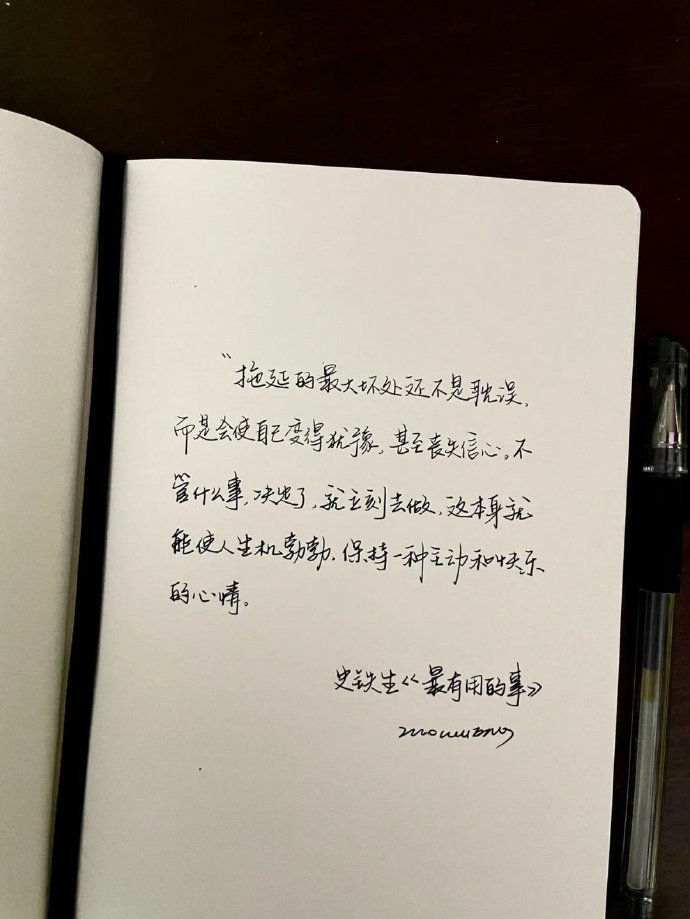 “拖延的最大坏处还不是耽误,
而是会使自己变得犹豫,甚至丧失信心。不
管什么事,决定了,就立刻去做,这本身就
能使人生机勃勃,保持一种主动和快乐
的心情。
史铁生《最有用的事》